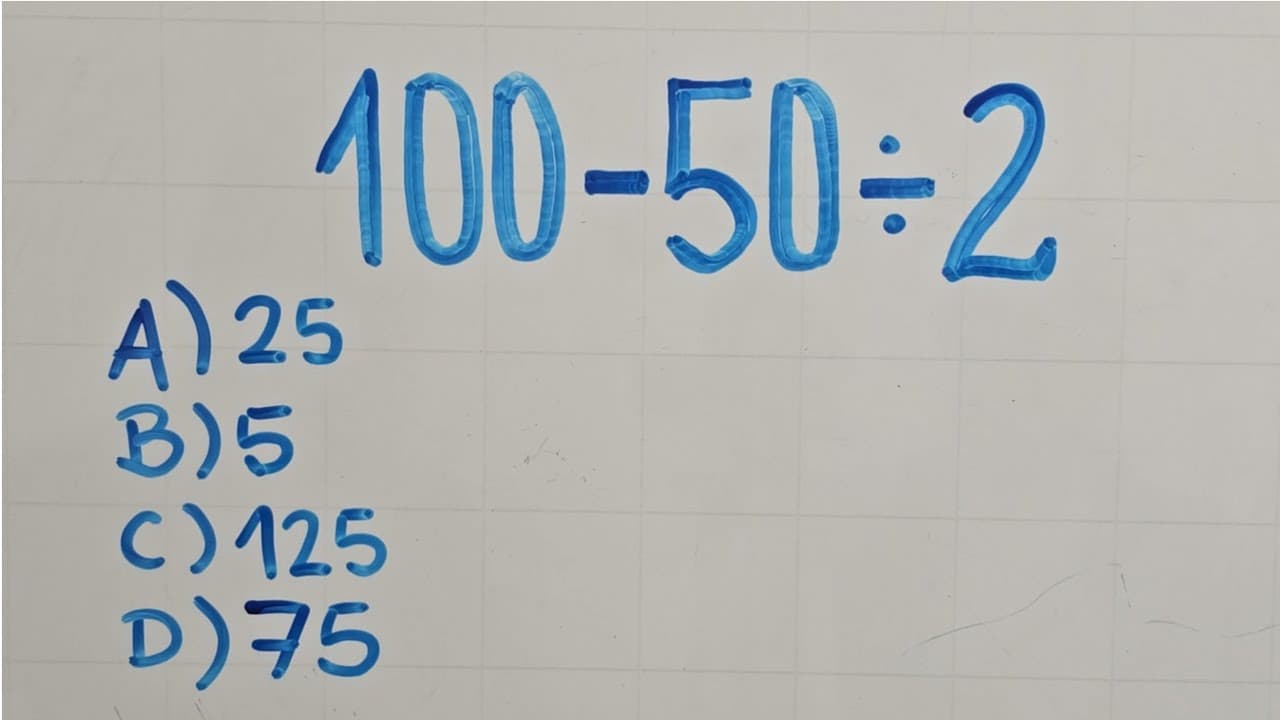 100-50÷2
A) 25
B) 5
C) 125
D) 75